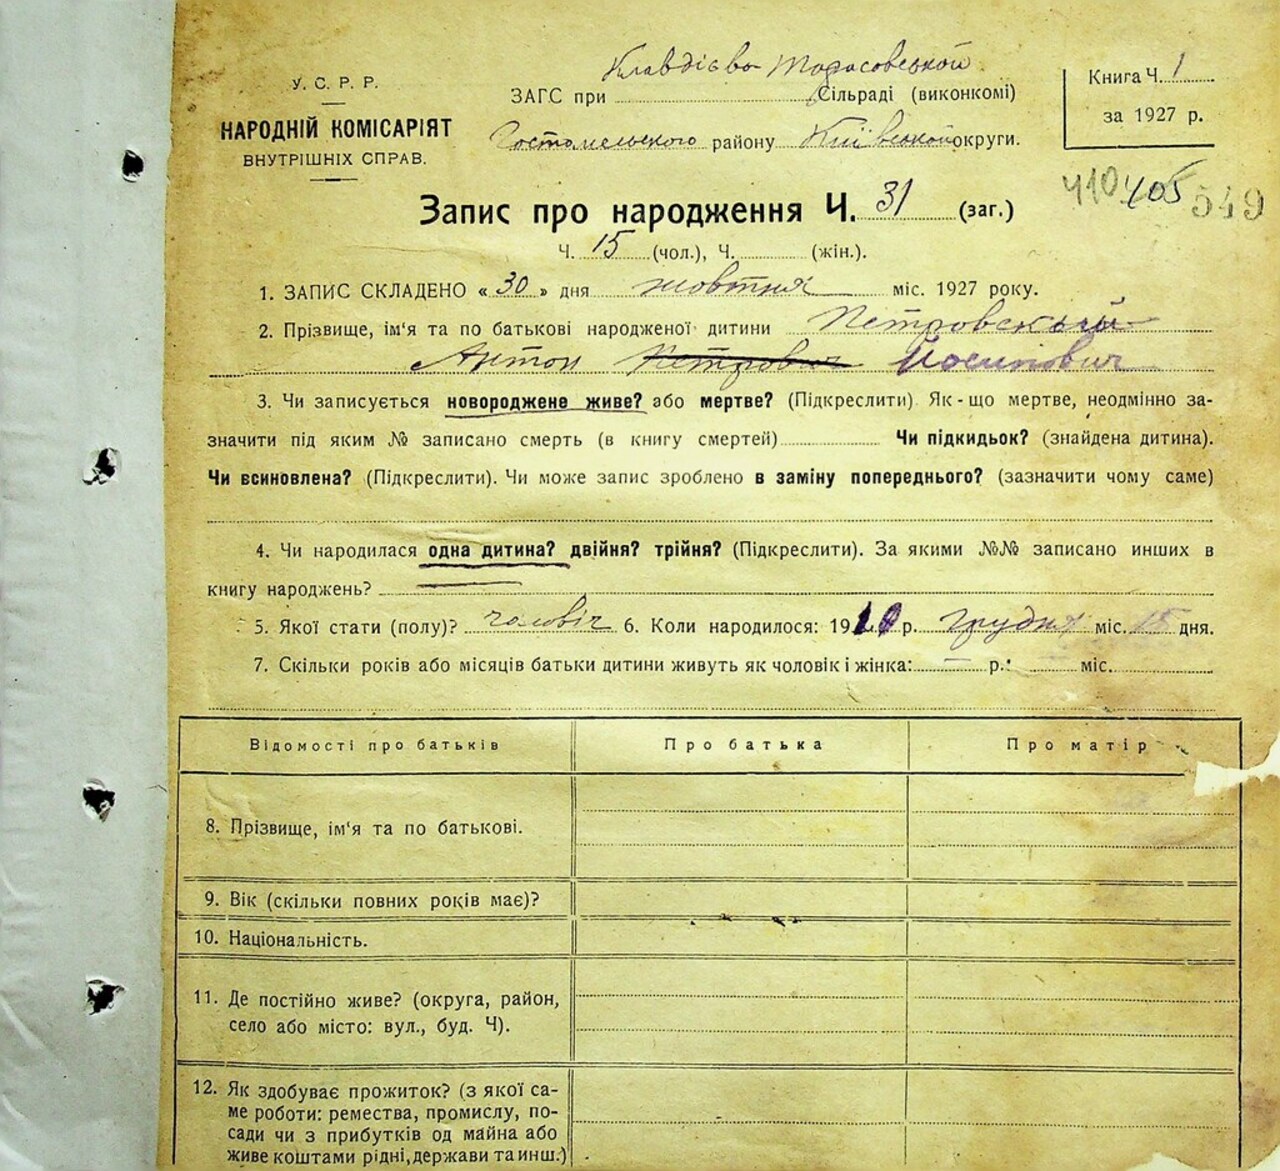 У. С. Р. Р.
НАРОДНІЙ КОМІСАРІЯТ
ВНУТРІШНІХ СПРАВ.
Клавдієво Тарасовської
ЗАГС при Сільраді (виконкомі)
Гостомельського району Київської округи.
Книга Ч. 1
за 1927 р.
410 405 549
Запис про народження Ч. 31 (заг.)
Ч. 15 (чол.), Ч. (жін.).
1. ЗАПИС СКЛАДЕНО « 30 » дня жовтня міс. 1927 року.
2. Прізвище, ім'я та по батькові народженої дитини Петровський
Антон Петрович Йосипович
3. Чи записується новороджене живе? або мертве? (Підкреслити). Як-що мертве, неодмінно за-
значити під яким № записано смерть (в книгу смертей) Чи підкидьок? (знайдена дитина).
Чи всиновлена? (Підкреслити). Чи може запис зроблено в заміну попереднього? (зазначити чому саме)
4. Чи народилася одна дитина? двійня? трійня? (Підкреслити). За якими №№ записано инших в
книгу народжень?
5. Якої стати (полу)? чоловіч 6. Коли народилося: 19 р. грудня міс. 15 дня.
7. Скільки років або місяців батьки дитини живуть як чоловік і жінка: — р. міс.
Відомості про батьків Про батька Про матір
8. Прізвище, ім'я та по батькові.
9. Вік (скільки повних років має)?
10. Національність.
11. Де постійно живе? (округа, район,
село або місто: вул., буд. Ч).
12. Як здобуває прожиток? (з якої са-
ме роботи: ремества, промислу, по-
сади чи з прибутків од майна або
живе коштами рідні, держави та инш.)